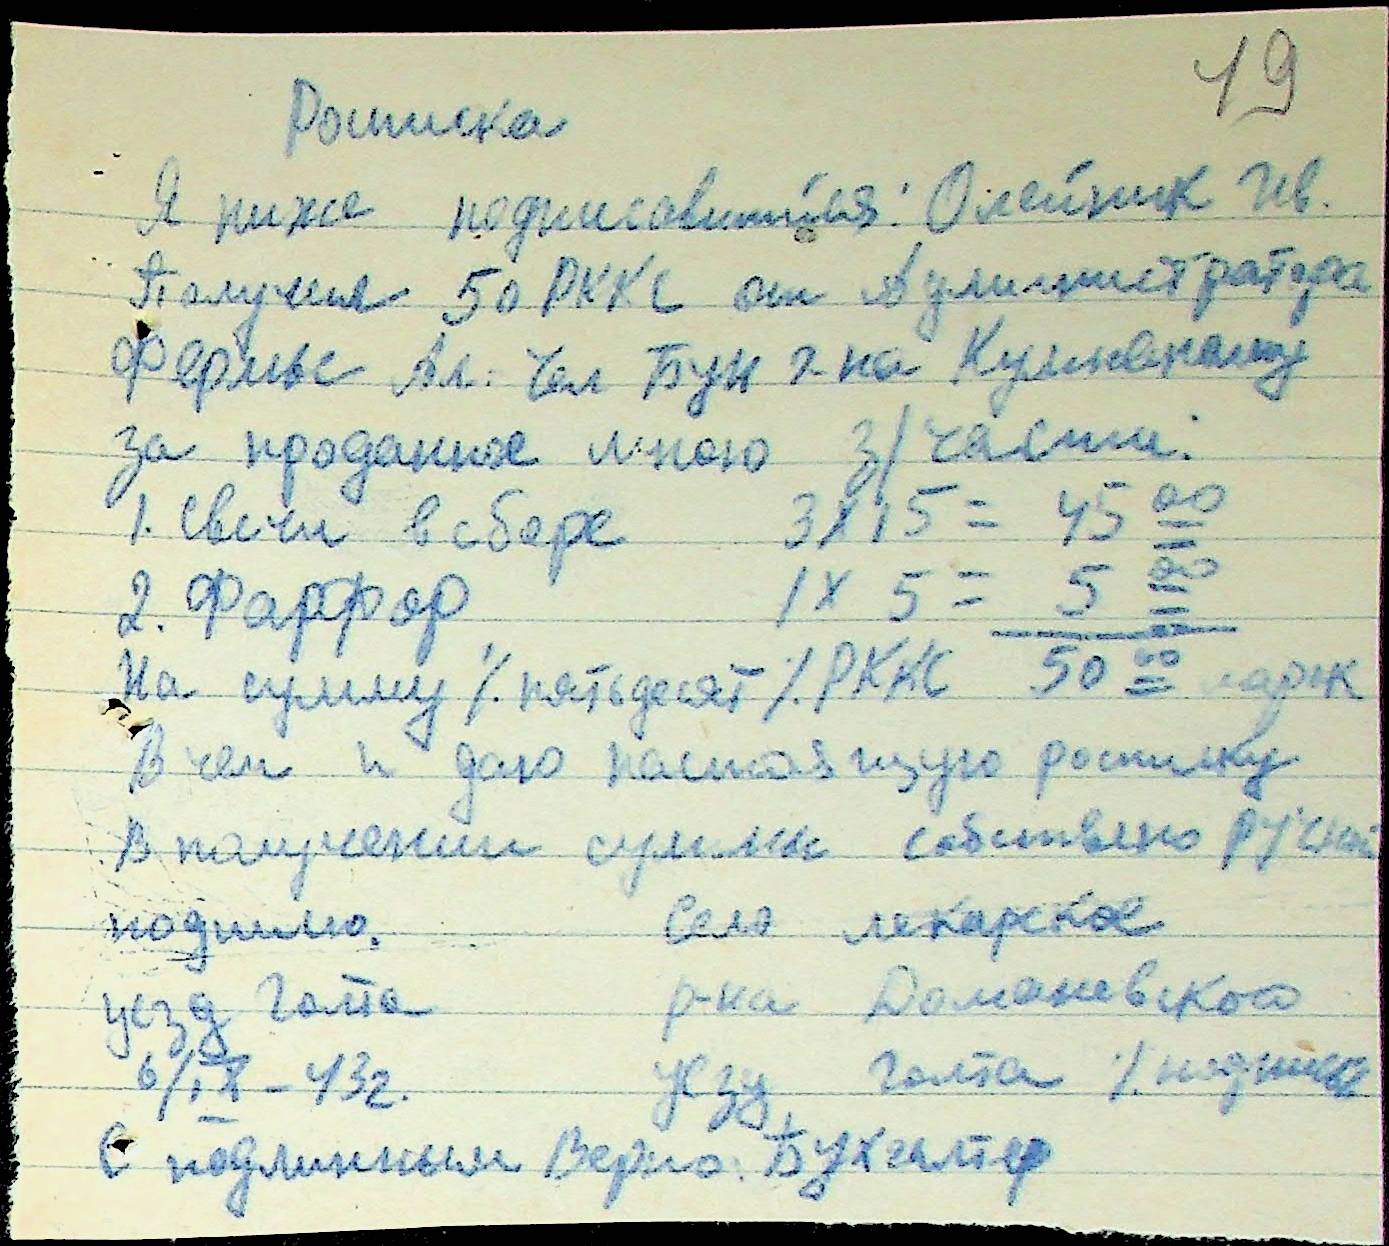 19
Росписка
Я ниже подписавшийся: Олейник Ив.
Получил 50 РККС от Администратора
Фермы Ал. Чел Бун г-на Кулишенку
за проданное мною з/части:
1. Свечи в сборе 3х15 = 45 00
2. Фарфор 1х 5 = 5 00
На сумму /. пятьдесят /. РККС 50 00 марк
В чем и даю настоящую росписку
В получении суммы собственно ручной
подпись. Село лекарское
уезд Голта р-на Доманевского
6/IX – 43г. уезд Голта /. подпись
С подлинным Верно: Бухгалтер